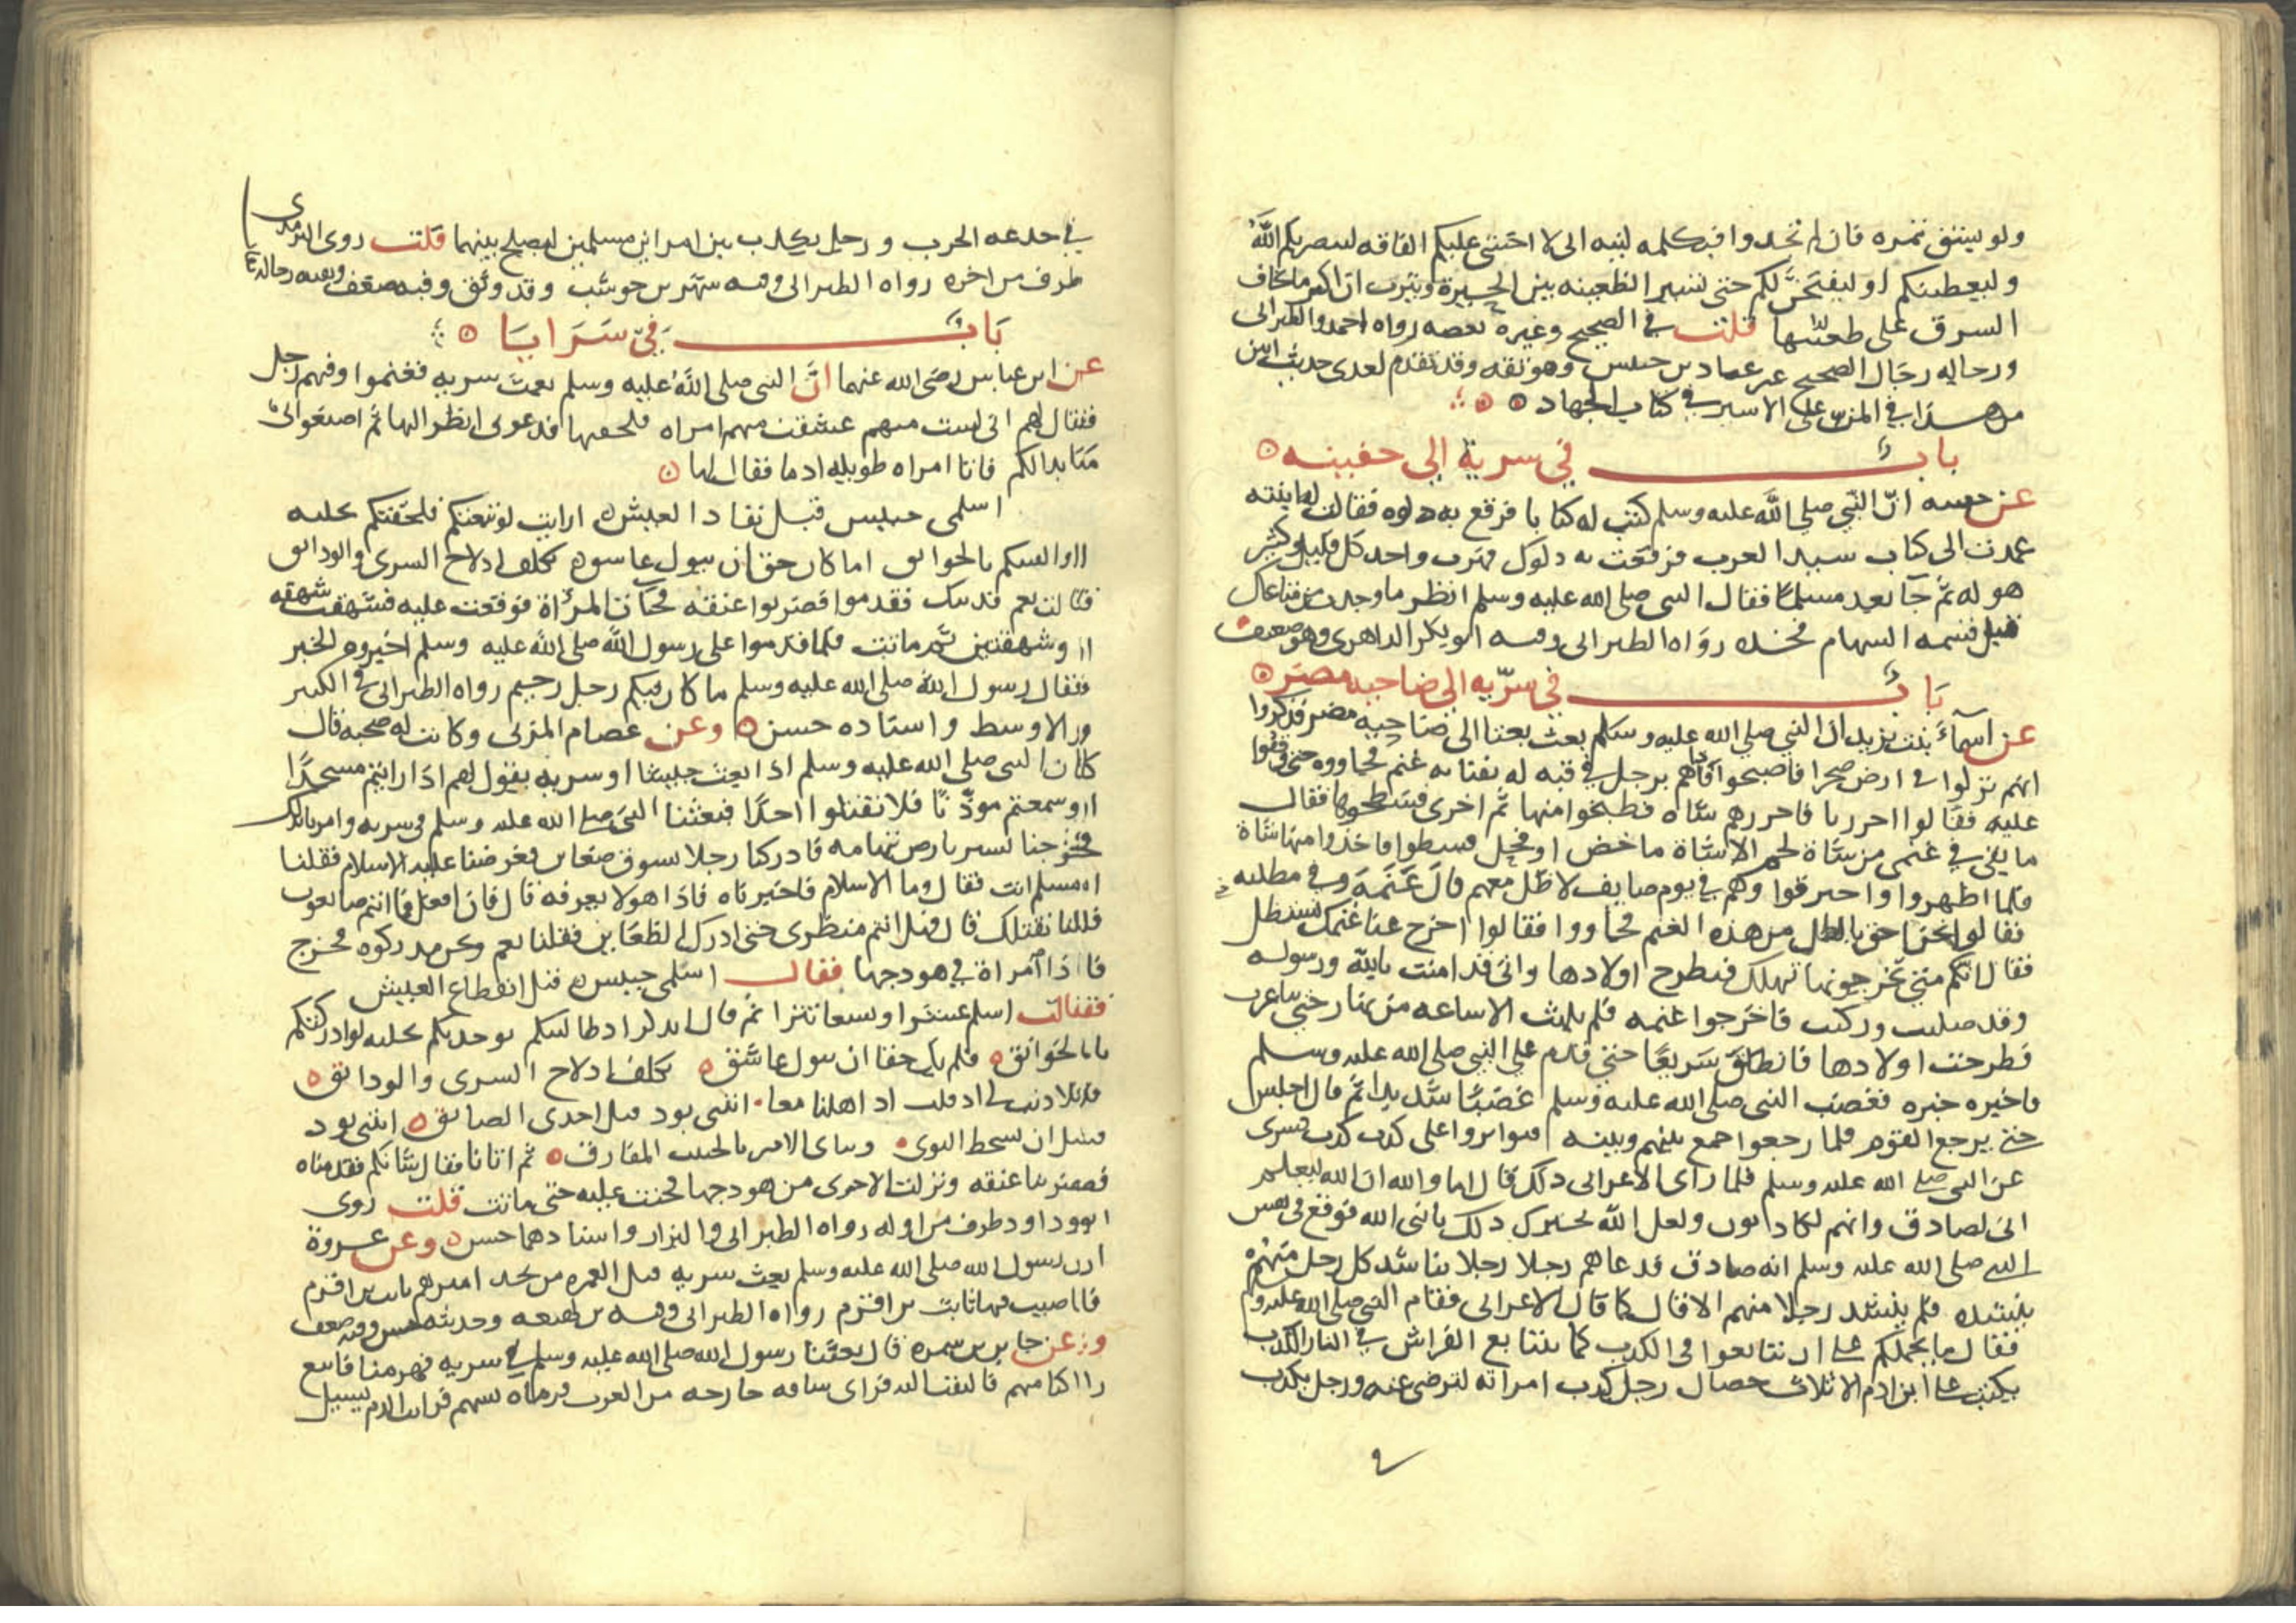 ولو بشق تمره فان لم تجدوا فبكلمه لينه انى لا اخشى عليكم الفاقه لينصرنكم الله
وليعطينكم او ليفتحن لكم حتى تسير الظعينه بين الحيرة ويثرب ان اكثر ما تخاف
السرق على ظعينتها قلت فى الصحيح وغيره بعضه رواه احمد والطبرانى
ورجاله رجال الصحيح غير عباد بن حبيش وهو ثقه وقد تقدم لعدى حديث ابين
من هذا فى المن على الاسير فى كتاب الجهاد
باب فى سرية الى جفينه
عن جفينه ان النبي صلى الله عليه وسلم كتب له كتابا فرقع به دلوه فقالت له ابنته
عمدت الى كتاب سيد العرب فرقعت به دلوك فهرب واخد كل قليل وكثير
هو له ثم جا بعد مسلما فقال النبى صلى الله عليه وسلم انظر ما وجدت من متاعك
قبل قسمه السهام فخذه رواه الطبرانى وفيه ابو بكر الداهرى وهو ضعيف
باب فى سريه الى ضاحيه مضر
عن اسماء بنت يزيد ان النبي صلى الله عليه وسلم بعث بعثا الى ضاحيه مضر فذكروا
انهم نزلوا فى ارض صحرا فاصبحوا فاذا هم برجل في قبه له بفنائه غنم فجاووه حتى وقفوا
عليه فقالوا اجزرنا فاجزرهم شاه فطبخوا منها ثم اخرى فسطحوها فقال
ما بقى في غنمى من شاة لحم الا شاة ماخض او فحل فسطوا فاخذوا منها شاة
فلما اظهروا واحترقوا وهم في يوم صايف لا ظل معهم قال غنمه وفي مظلته
فقالوا نحن احق بالظل من هذه الغنم فجاووا فقالوا اخرج عنا غنمك نستظل
فقال انكم متى تخرجونها تهلك فتطرح اولادها وانى قد امنت بالله ورسوله
وقد صليت وزكيت فاخرجوا غنمه فلم يلبث الا ساعه من نهار حتى تناغرت
فطرحت اولادها فانطلق سريعا حتى قدم على النبي صلى الله عليه وسلم
فاخبره خبره فغضب النبى صلى الله عليه وسلم غضبا شديدا ثم قال اجلس
حتى يرجع القوم فلما رجعوا جمع بينهم وبينه فتواتروا على كدب كدب فسرى
عن النبى صلى الله عليه وسلم فلما راى الاعرابى ذلك قال اما والله ان الله ليعلم
انى لصادق وانهم لكاذبون ولعل الله يخبرك ذلك يا نبى الله فوقع فى نفس
النبى صلى الله عليه وسلم انه صادق فدعاهم رجلا رجلا يناشد كل رجل منهم
بنشده فلم ينشد رجلا منهم الا قال كما قال الاعرابى فقام النبي صلى الله عليه وسلم
فقال ما يحملكم على ان تتابعوا فى الكدب كما يتتابع الفراش في النار الكدب
يكتب على ابن ادم الا ثلاث خصال رجل كدب امراته لترضى عنه ورجل يكدب
في خدعه الحرب ورجل يكدب بين امراين مسلمين ليصلح بينهما قلت روى الترمذى
طرف من اخره رواه الطبرانى وفيه شهر بن حوشب وقد وثق وفيه ضعف وبقيه رجاله ثقات
باب في سرايا
عن ابن عباس رضى الله عنهما ان النبى صلى الله عليه وسلم بعث سريه فغنموا وفيهم رجل
فقال لهم انى لست منهم عشقت منهم امراه فلحقتها فدعونى انظر اليها ثم اصنعوا بى
ما بدا لكم فاذا امراه طويله ادما فقال لها
اسلمى حبيش قبل نفاد العيش ارايت لو تبعتكم فلحقتكم بحليه
او الفيتكم بالخوانق اما كان حق ان ينول عاشق تكلف ادلاج السرى والودائق
قالت نعم فديتك فقدموا فضربوا عنقه فجات المرأة فوقعت عليه فشهقت شهقه
او شهقتين ثم ماتت فلما قدموا على رسول الله صلى الله عليه وسلم اخبروه الخبر
فقال رسول الله صلى الله عليه وسلم ما كان فيكم رجل رحيم رواه الطبرانى فى الكبير
والاوسط واسناده حسن وعن عصام المزنى وكانت له صحبه قال
كان النبى صلى الله عليه وسلم اذا بعث جيشا او سريه يقول لهم اذا رايتم مسجدا
او سمعتم موذنا فلا تقتلوا احدا فبعثنا النبى صلى الله عليه وسلم فى سريه وامرنا بذلك
فخرجنا نسير بارض تهامه فادركنا رجلا يسوق ضعاين فعرضنا عليه الاسلام فقلنا
امسلم انت فقال وما الاسلام فاخبرناه فاذا هو لا يعرفه قال فان لم افعل فما انتم صانعون
قلنا نقتلك قال فهل انتم منظرى حتى ادرك الظعاين فقلنا نعم ونحن مدركوه فخرج
فاذا امراة فى هودجها فقال اسلمى حبيش قبل انقطاع العيش
فقالت اسلم عشرا وتسعا تترا ثم قال اتذكر اذ طالبتكم فوجدتكم بحليه او ادركتكم
بالخوانق فلم يك حقا ان ينول عاشق تكلف ادلاج السرى والودائق
فلا ذنب لى اذ قلت اذ اهلنا معا اثيبى بود قبل احدى الصفائق اثيبى بود
قبل ان تشحط النوى وينأى الامير بالحبيب المفارق ثم اتانا فقال شانكم فقدمناه
فضربنا عنقه ونزلت الاخرى من هودجها فحنت عليه حتى ماتت قلت روى
ابو داود طرف من اوله رواه الطبرانى والبزار واسنادهما حسن وعن عروة
ان رسول الله صلى الله عليه وسلم بعث سريه قبل الغمره من نجد اميرهم ثابت بن اقرم
فاصيب فيها ثابت بن اقرم رواه الطبرانى وفيه بن لهيعه وحديثه حسن وفيه ضعف
وعن جابر بن سمره قال بعثنا رسول الله صلى الله عليه وسلم فى سريه فهزمنا فاتبع
راكبا منهم فالتفت اليه فراى ساقه خارجه من الغرز فرماه بسهم فرايت الدم يسيل